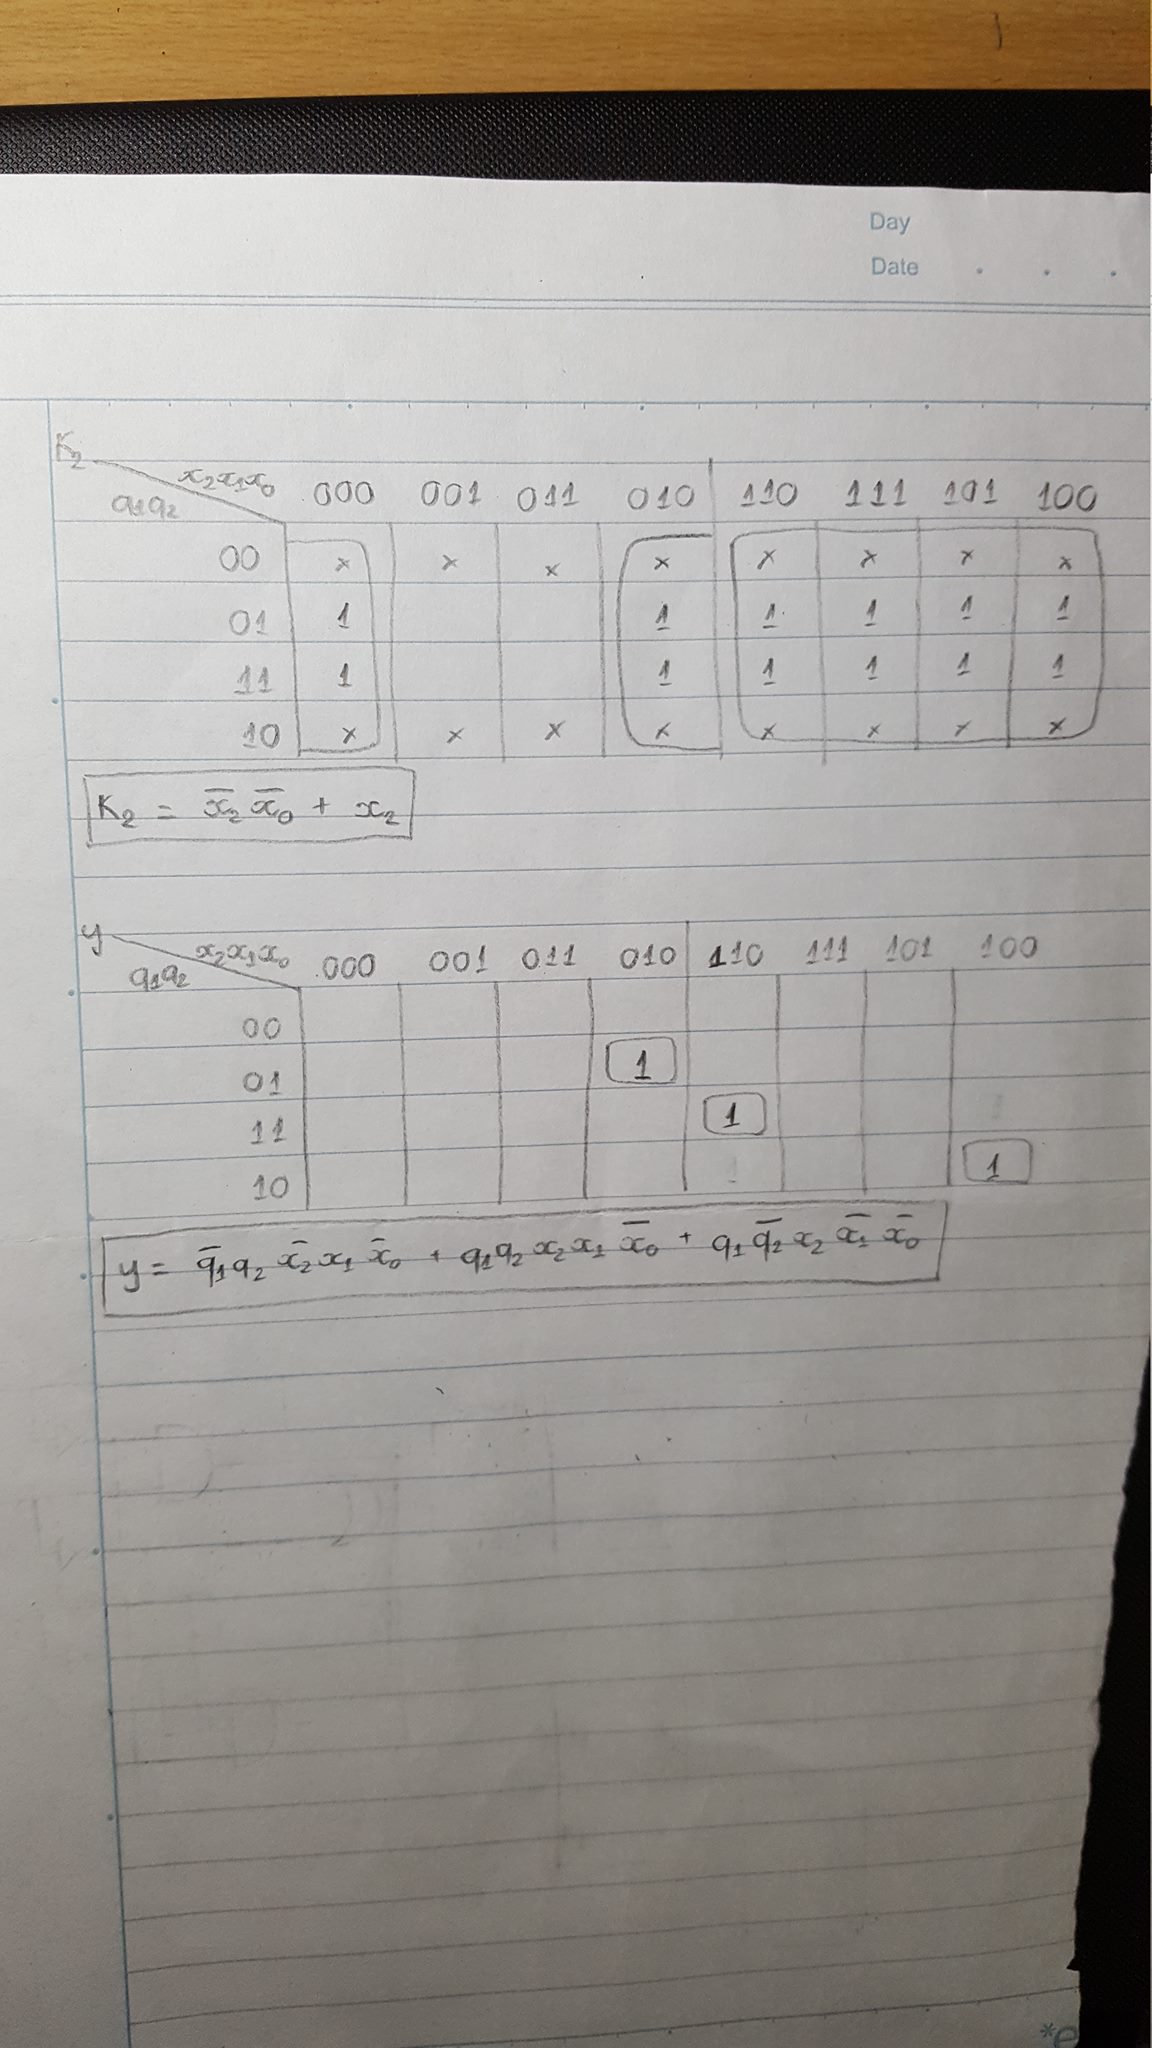 Day
Date . . .
K₂ x₂x₁x₀ 000 001 011 010 110 111 101 100
q₁q₂
00 x x x x x x x x
01 1 1 1 1 1 1
11 1 1 1 1 1 1
10 x x x x x x x x
K₂ = x̅₂ x̅₀ + x₂
y x₂x₁x₀ 000 001 011 010 110 111 101 100
q₁q₂
00
01 1
11 1
10 1
y = q̅₁ q₂ x̅₂ x₁ x̅₀ + q₁ q₂ x₂ x₁ x̅₀ + q₁ q̅₂ x₂ x̅₁ x̅₀